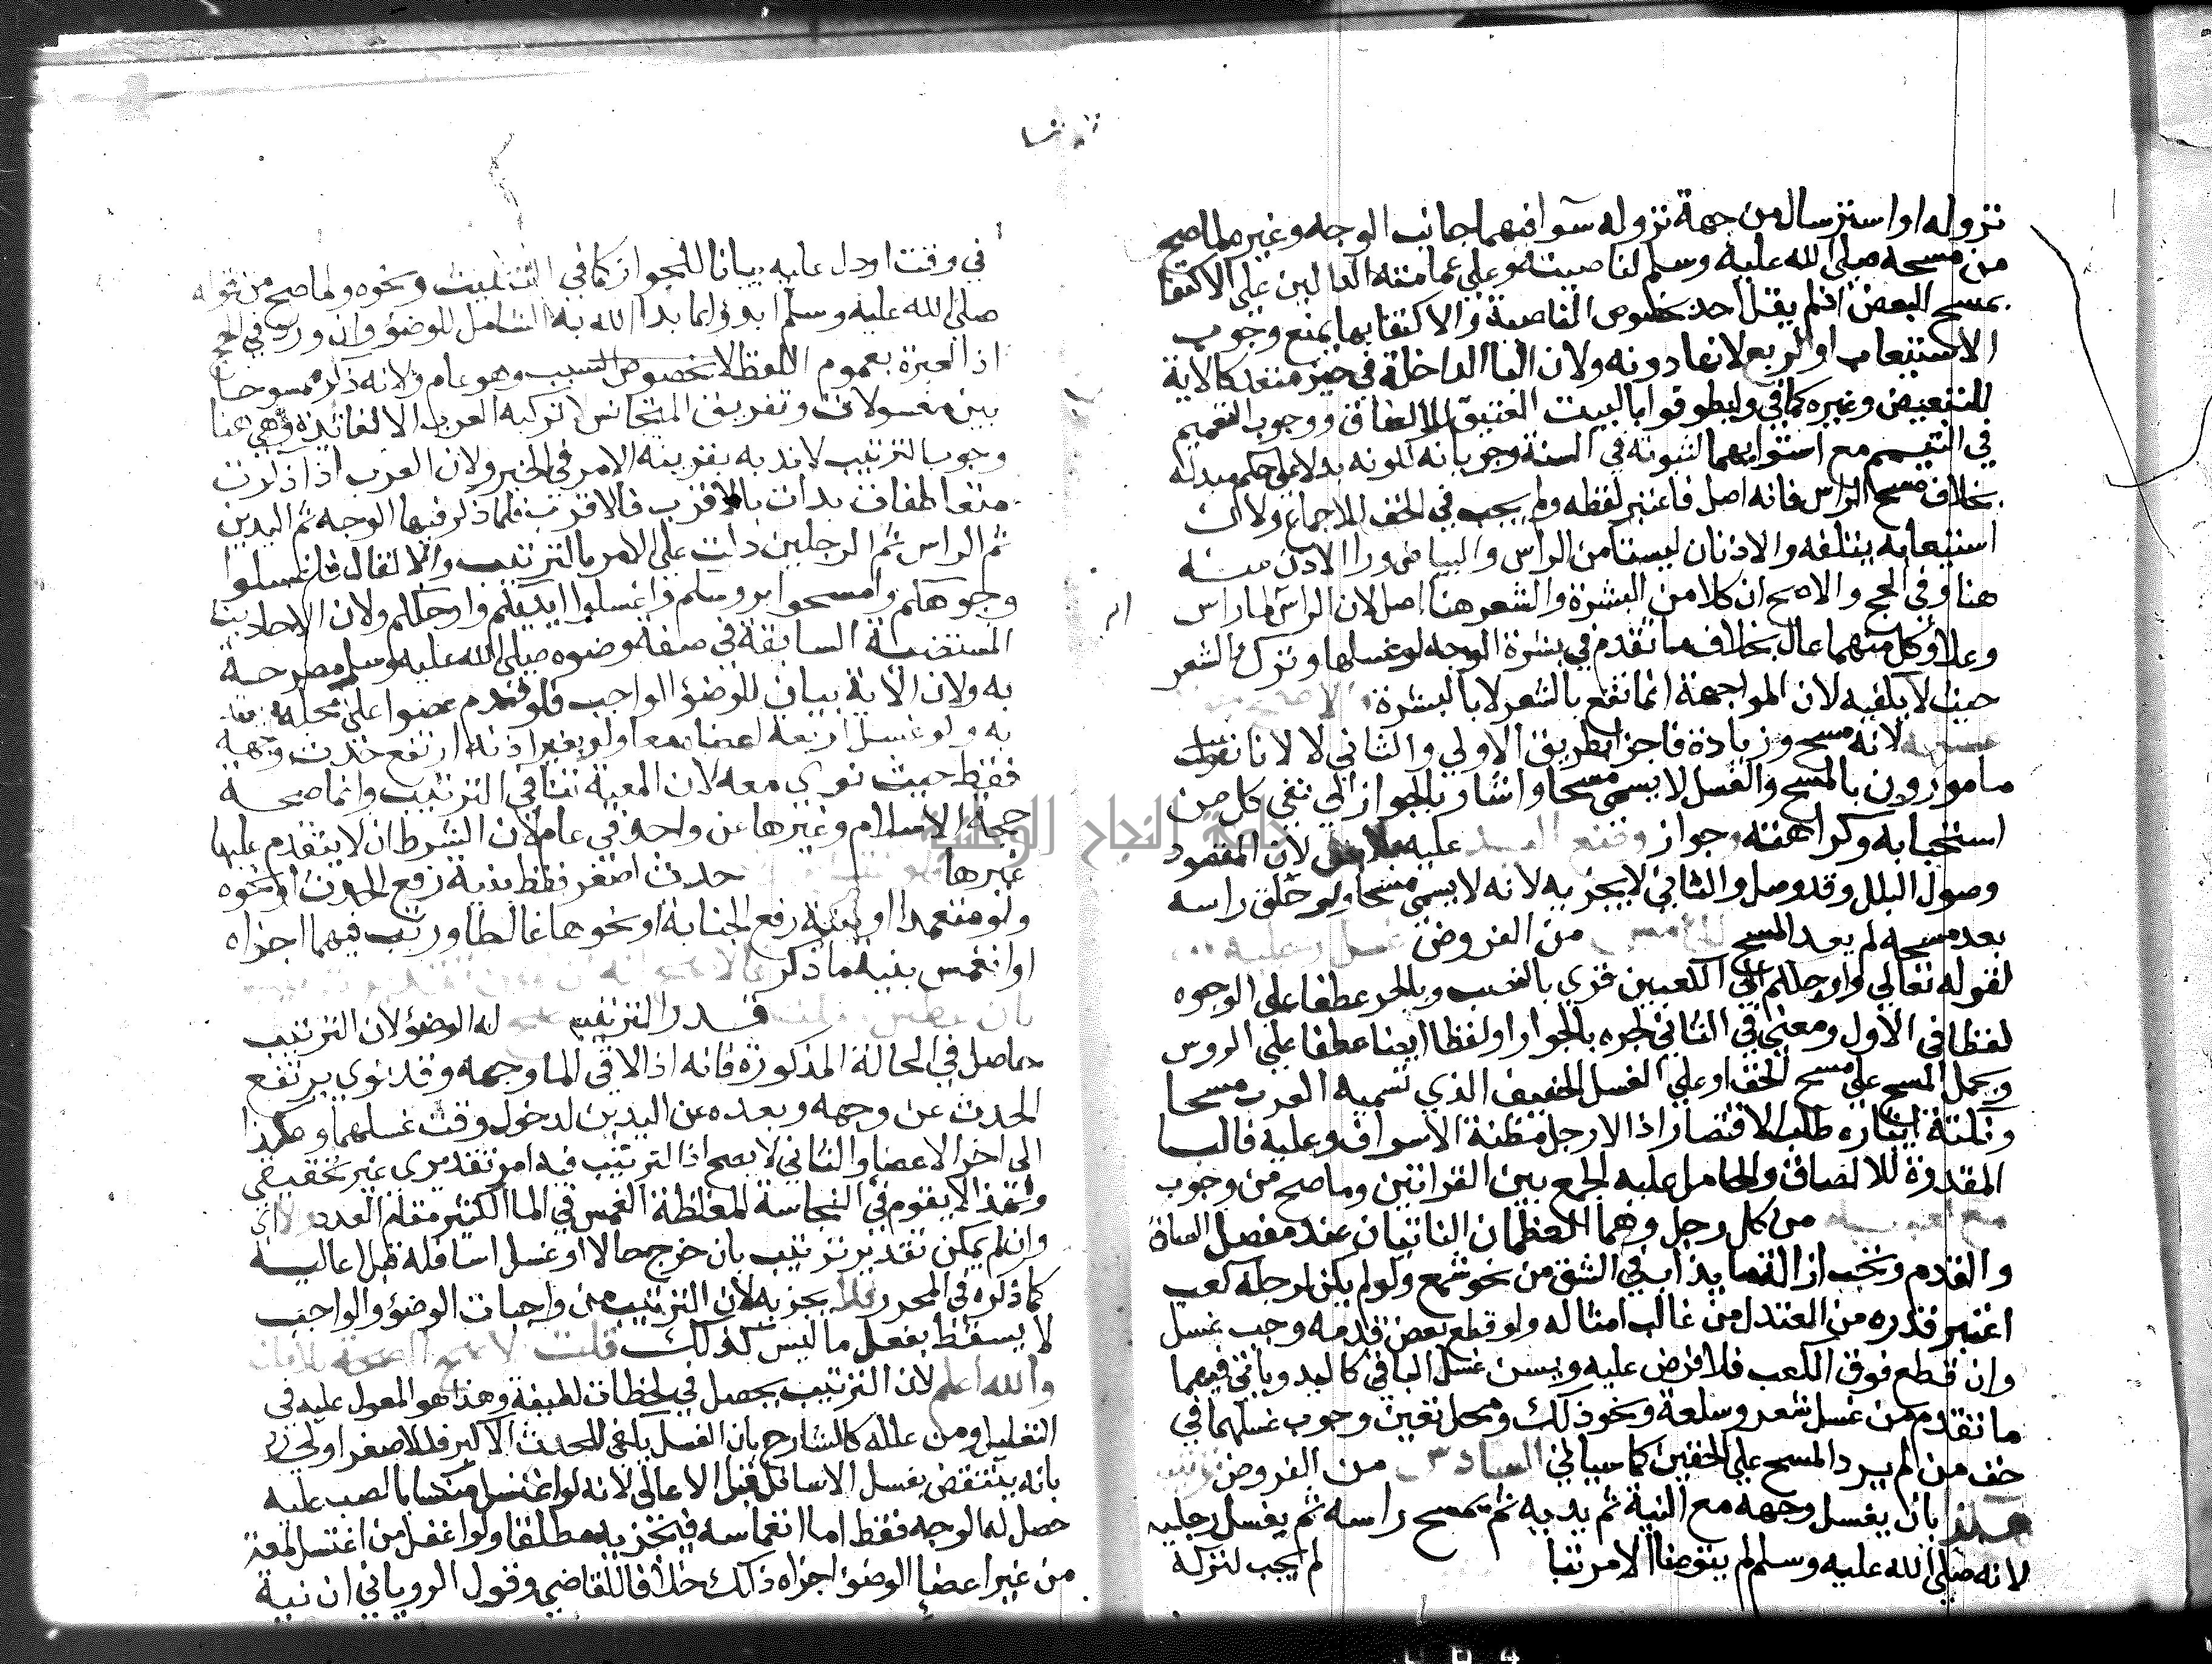 نزوله او استرساله من جهة نزوله سوا فيهما جانب الوجه وغيره لما صح
من مسحه صلي الله عليه وسلم لناصيته وعلي عمامته الدالين علي الاكتفا
بمسح البعض اذ لم يقل احد بخصوص الناصية والاكتفا بها يمنع وجوب
الاستيعاب او الربع لانها دونه ولان البا الداخلة في حيز متعد كالاية
للتبعيض وغيره كما في وليطوفوا بالبيت العتيق للالصاق ووجوب التعميم
في التيمم مع استوايهما لثبوته في السنة وجريانه لكونه بدلا علي حكم مبدله
بخلاف مسح الراس فانه اصل فاعتبر لفظه ولم يجب في الخف للاجماع ولان
استيعابه يتلفه والاذنان ليستا من الراس والبياض ورا الاذن منه
هنا وفي الحج والاصح ان كلا من البشرة والشعر هنا اصل لان الراس لما راس
وعلا وكل منهما عال بخلاف ما تقدم في بشرة الوجه لو غسلها وترك الشعر
حيث لا يكفيه لان المواجهة انما تقع بالشعر لا بالبشرة
لانه مسح وزيادة فاجزا بطريق الاولي والثاني لا لاننا
مامورون بالمسح والغسل لا يسمي مسحا واشار بالجواز الي نفي كل من
استحبابه وكراهته وجواز وضع اليد عليه بلا مد لان المقصود
وصول البلل وقد وصل والثاني لا يجزيه لانه لا يسمي مسحا ولو حلق راسه
بعد مسحه لم يعد المسح من الفروض
لقوله تعالي وارجلكم الي الكعبين قري بالنصب وبالجر عطفا علي الوجوه
لفظا في الاول ومعني في الثاني لجره بالجوار او لفظا ايضا عطفا علي الروس
ويحمل المسح علي مسح الخف او علي الغسل الخفيف الذي تسميه العرب مسحا
ونكتة ايثاره طلب الاقتصار اذ الارجل مظنة الاسراف وعليه فالبا
المقدرة للالصاق والحامل عليه الجمع بين القراتين وما صح من وجوب
من كل رجل وهما العظمان الناتيان عند مفصل الساق
والقدم ويجب ازالة ما يذاب في الشق من نحو شمع ولو لم يكن لرجله كعب
اعتبر قدره من المعتدل من غالب امثاله ولو قطع بعض قدمه وجب غسل
وان قطع فوق الكعب فلا فرض عليه ويسن غسل الباقي كاليد وياتي فيهما
ما تقدم من غسل شعر وسلعة ونحو ذلك ومحل تعين وجوب غسلهما في
حق من لم يرد المسح علي الخفين كما سياتي السادس من الفروض
بان يغسل وجهه مع النية ثم يديه ثم يمسح راسه ثم يغسل رجليه
لانه صلي الله عليه وسلم لم يتوضا الا مرتبا لم يجب لتركه
في وقت او دل عليه بيانا للجواز كما في التثليث ونحوه ولما صح من قوله
صلي الله عليه وسلم ابدؤا بما بدا الله به الشامل للوضو وان ورد في الحج
اذ العبرة بعموم اللفظ لا بخصوص السبب وهو عام ولانه ذكر ممسوحا
بين مغسولات وتفريق المتجانس لا تركبه العرب الا لفائدة وهي هنا
وجوب الترتيب لا ندبه بقرينة الامر في الخبر ولان العرب اذا ذكرت
متعاطفات بدات بالاقرب فالاقرب فلما ذكر فيها الوجه ثم اليدين
ثم الراس ثم الرجلين دلت علي الامر بالترتيب والا لقال فاغسلوا
وجوهكم وامسحوا بروسكم واغسلوا ايديكم وارجلكم ولان الاحاديث
المستفيضة السابقة في صفة وضوه صلي الله عليه وسلم مصرحة
به ولان الاية بيان للوضو الواجب فلو قدم عضوا علي محله
به ولو غسل اربعة اعضاه معا ولو بغير اذنه ارتفع حدث وجهه
فقط حيث نوي معه لان المعية تنافي الترتيب وانما صحة
حجة الاسلام وغيرها عن واحد في عام لان الشرط ان لا يتقدم عليها
غيرها حدث اصغر فقط بنية رفع الحدث او نحوه
ولو متعمدا او بنية رفع الجنابة او نحوها غالطا ورتب فيهما اجزاه
او انغمس بنية ما ذكر
قدر الترتيب له الوضو لان الترتيب
حاصل في الحالة المذكورة فانه اذا لاقي الما وجهه وقد نوي يرتفع
الحدث عن وجهه وبعده عن اليدين لدخول وقت غسلهما وهكذا
الي اخر الاعضا والثاني لا يصح اذ الترتيب فيه امر تقديري غير تحقيقي
ولهذا لا يقوم في النجاسة المغلظة الغمس في الما الكثير مقام العدد
وان لم يمكن تقدير ترتيب بان خرج حالا او غسل اسافله قبل اعاليه
كما ذكره في المحرر فلا يجزيه لان الترتيب من واجبات الوضو والواجب
لا يسقط بفعل ما ليس كذلك قلت
والله اعلم لان الترتيب يحصل في لحظات لطيفة وهذا هو المعول عليه في
التعليل ومن علله كالشارح بان الغسل يكفي للحدث الاكبر فللاصغر اولي
بانه ينتقض بغسل الاسافل قبل الاعالي لانه لو اغتسل منكسا بالصب عليه
حصل له الوجه فقط اما انغماسه فيجزيه مطلقا ولو اغفل من اغتسل لمعة
من غير اعضا الوضو اجزاه ذلك خلافا للقاضي وقول الروياني ان نية
جامعة النجاح الوطنية